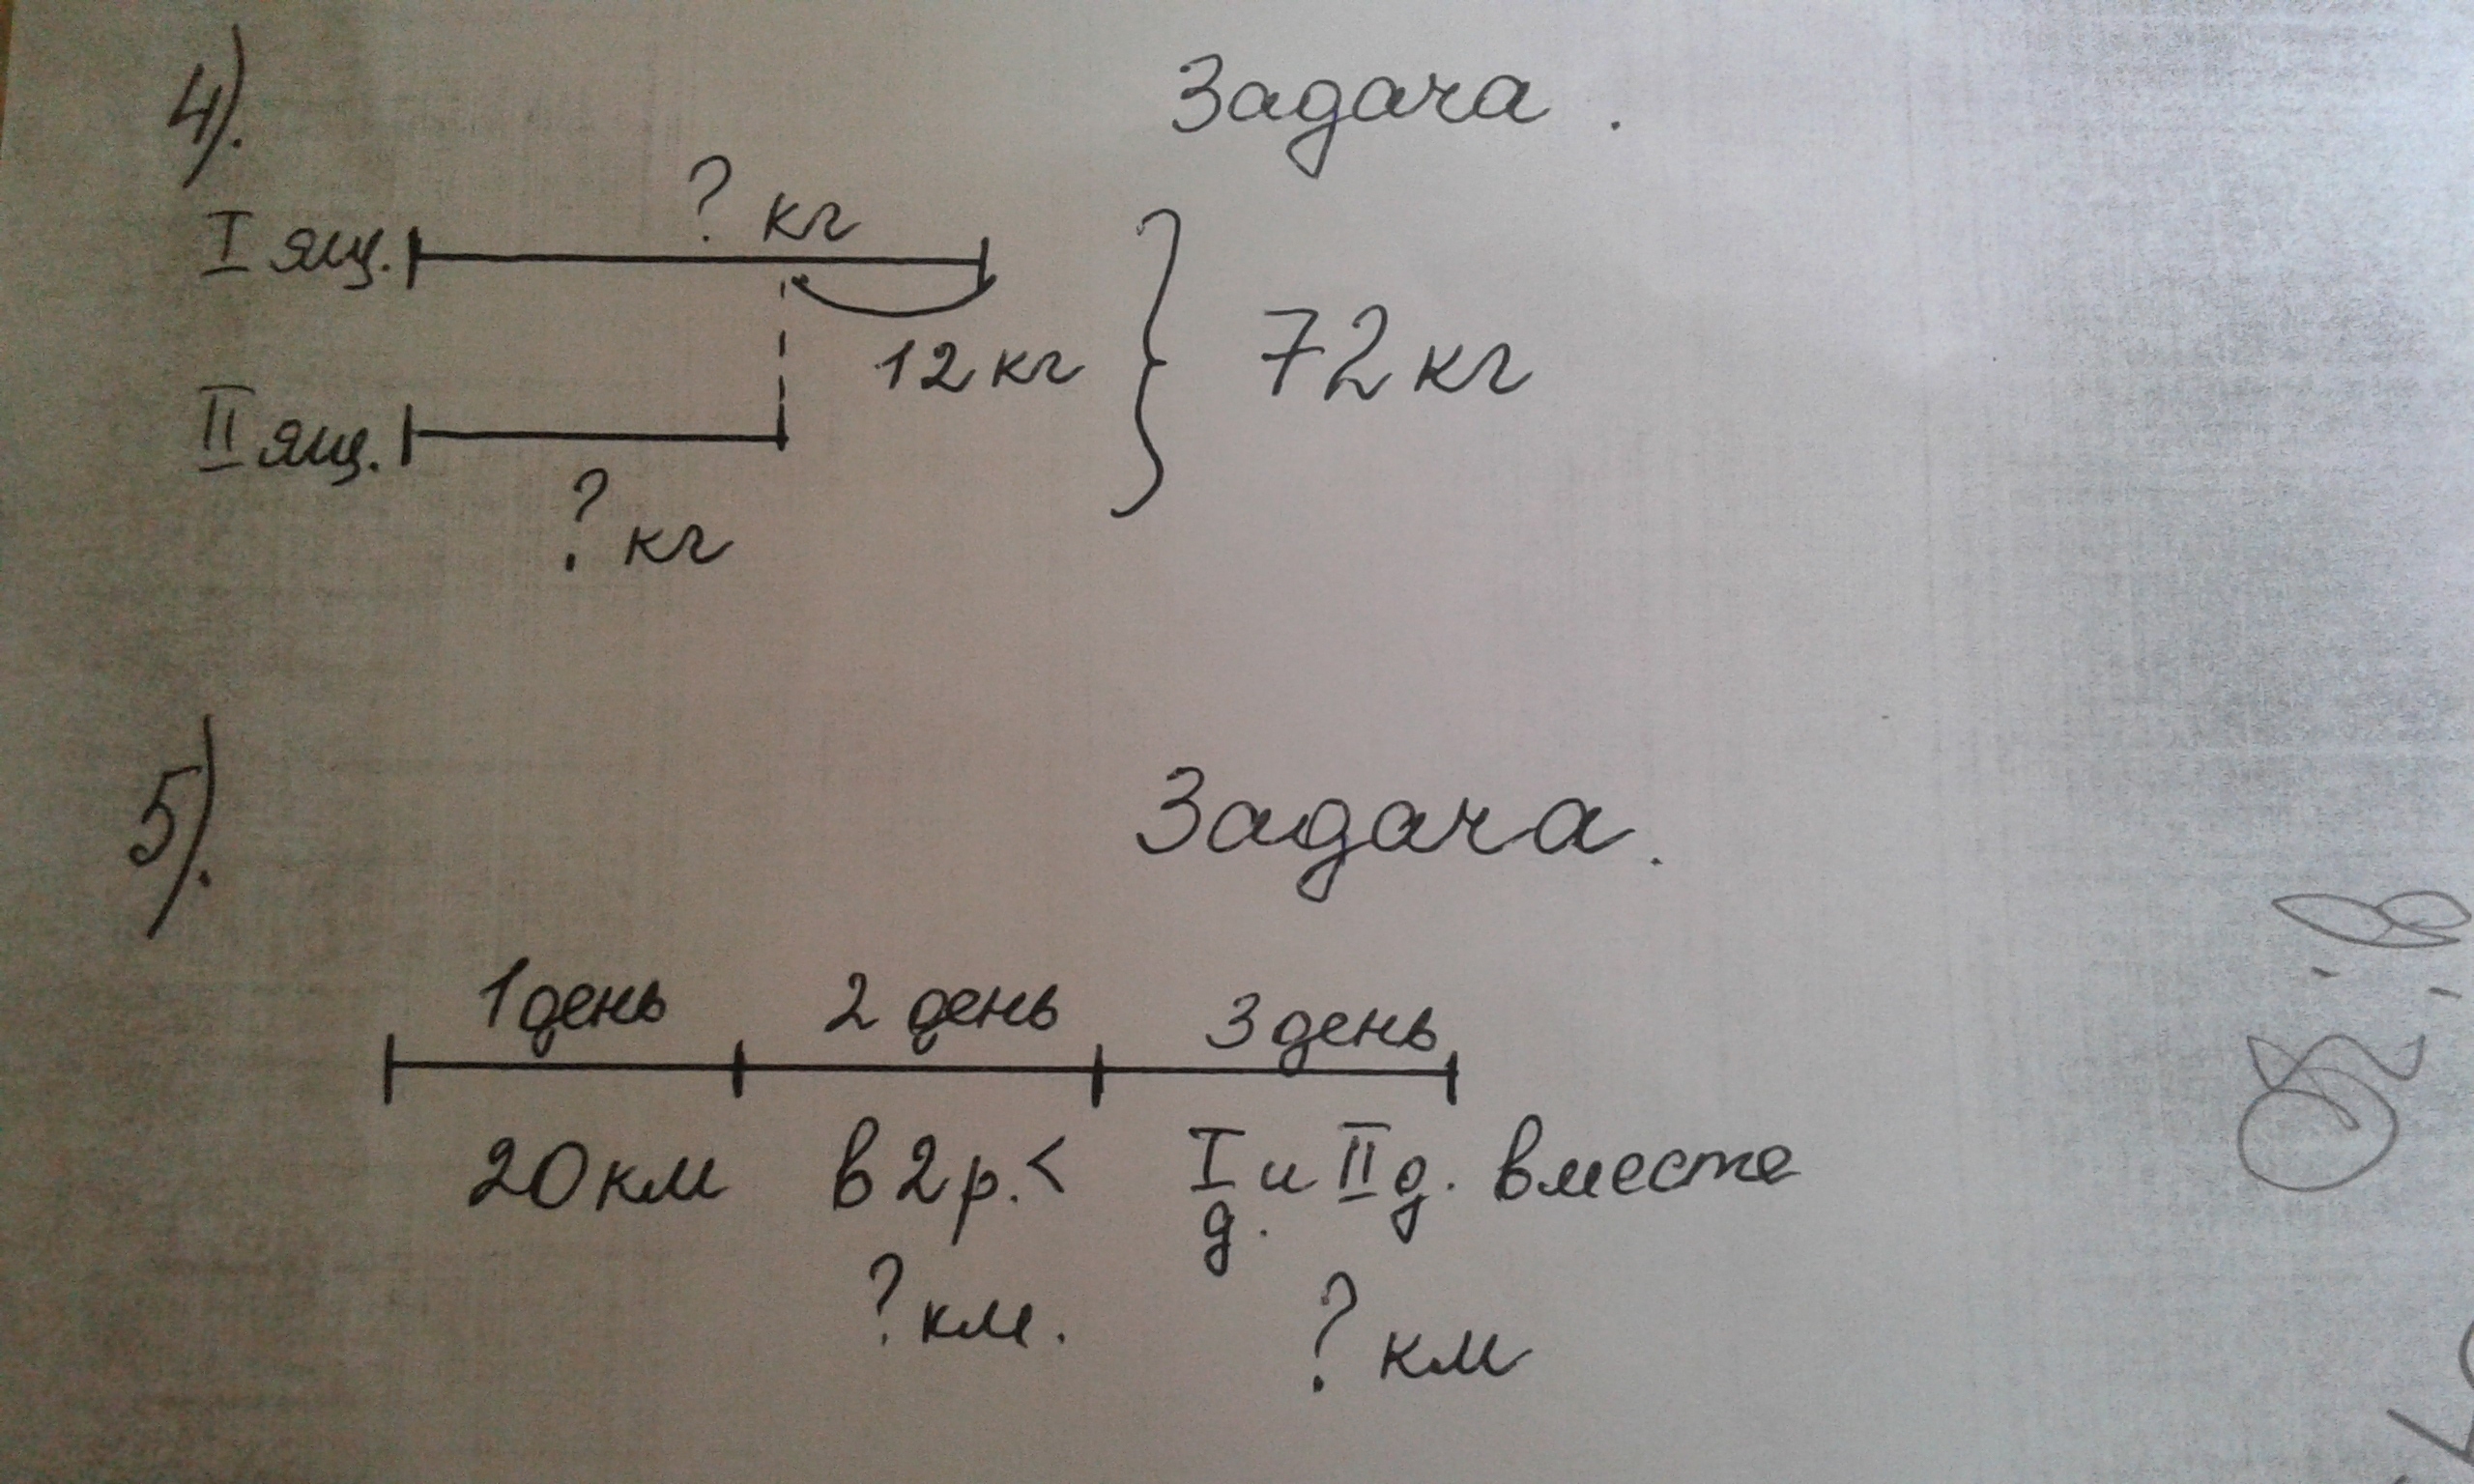 4).
Задача.
? кг
I ящ.
12 кг
72 кг
II ящ.
? кг
5).
Задача.
1 день 2 день 3 день
20 км в 2 р. < I д. и II д. вместе
? км. ? км